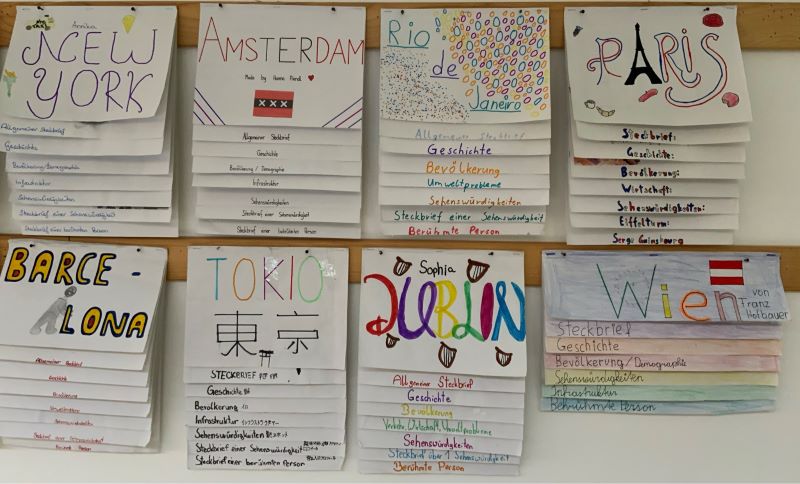 Annika
NEW
YORK
Allgemeiner Steckbrief
Geschichte
Bevölkerung/Demographie
Infrastruktur
Sehenswürdigkeiten
Steckbrief einer Sehenswürdigkeit
Steckbrief einer berühmten Person
AMSTERDAM
Made by Hanna
XXX
Allgemeiner Steckbrief
Geschichte
Bevölkerung / Demographie
Infrastruktur
Sehenswürdigkeiten
Steckbrief einer Sehenswürdigkeit
Steckbrief einer berühmten Person
Rio
de
Janeiro
Allgemeiner Steckbrief
Geschichte
Bevölkerung
Umweltprobleme
Sehenswürdigkeiten
Steckbrief einer Sehenswürdigkeit
Berühmte Person
PARIS
Steckbrief:
Geschichte:
Bevölkerung:
Wirtschaft:
Sehenswürdigkeiten:
Eiffelturm:
Serge Gainsbourg
BARCE-
LONA
Allgemeiner Steckbrief
Geschichte
Bevölkerung
Sehenswürdigkeiten
Person
TOKIO
東京
STECKBRIEF
Geschichte
Bevölkerung
Infrastruktur
Sehenswürdigkeiten
Steckbrief einer Sehenswürdigkeit
Steckbrief einer berühmten Person
Sophia
DUBLIN
Allgemeiner Steckbrief
Geschichte
Bevölkerung
Verkehr, Wirtschaft, Umweltprobleme
Sehenswürdigkeiten
Steckbrief über 1 Sehenswürdigkeit
Berühmte Person
Wien
von
Franz
Hofbauer
Steckbrief
Geschichte
Bevölkerung/Demographie
Sehenswürdigkeiten
Infrastruktur
Berühmte Person